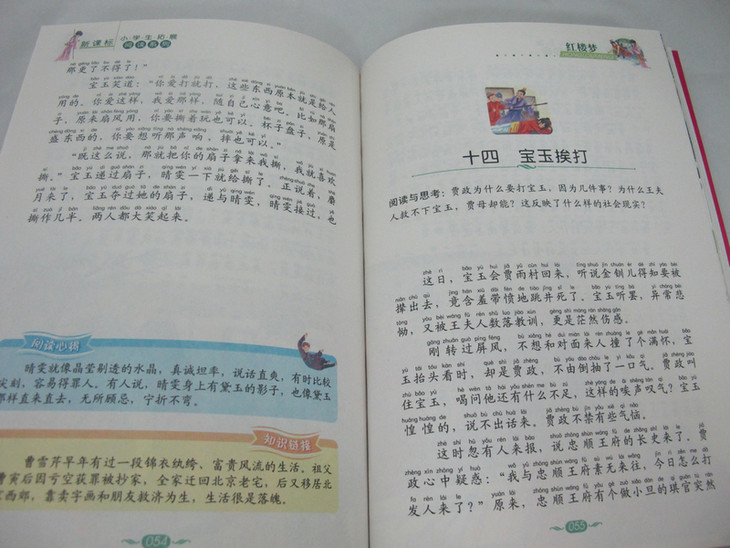 新课标
小学生拓展
阅读系列
那更了不得了！”
宝玉笑道：“你爱打就打，这些东西原本就是给人
用的，你爱这样，我爱那样，随自己心意吧。比如那扇
子，原来扇风用，你要撕着玩也可以，杯子盘子，原是
盛东西的，你要想听那声响，摔也可以。”
“既这么说，那就把你的扇子拿来我撕，我就喜欢
撕。”宝玉递过扇子，晴雯一下就给撕了。正说着，麝
月来了，宝玉夺过她的扇子，递与晴雯，晴雯接过，也
撕作几半，两人都大笑起来。
阅读心得
晴雯就像晶莹剔透的水晶，真诚坦率，说话直爽，有时比较
尖刻，容易得罪人。有人说，晴雯身上有黛玉的影子，也像黛玉
那样直来直去，无所顾忌，宁折不弯。
知识链接
曹雪芹早年有过一段锦衣纨绔、富贵风流的生活。祖父
曹寅后因亏空获罪被抄家，全家迁回北京老宅，后又移居北
京西郊，靠卖字画和朋友救济为生，生活很是落魄。
054
红楼梦
十四 宝玉挨打
阅读与思考：贾政为什么要打宝玉，因为几件事？为什么王夫
人救不下宝玉，贾母却能？这反映了什么样的社会现实？
这日，宝玉会贾雨村回来，听说金钏儿得知要被
撵出去，竟含羞带愤地跳井死了。宝玉听罢，异常悲
恸，又被王夫人数落教训，更是茫然伤感。
刚转过屏风，不想和对面来人撞了个满怀，宝
玉抬头看时，却是贾政，不由倒抽了一口气。贾政叫
住宝玉，喝问他还有什么不足，这样的唉声叹气？宝玉
惶惶的，说不出话来。贾政不禁有些气恼。
这时忽有人来报，说忠顺王府的长史来了。贾
政心中疑惑：“我与忠顺王府素无来往，今日怎么打
发人来了？”原来，忠顺王府有个做小旦的琪官突然
055